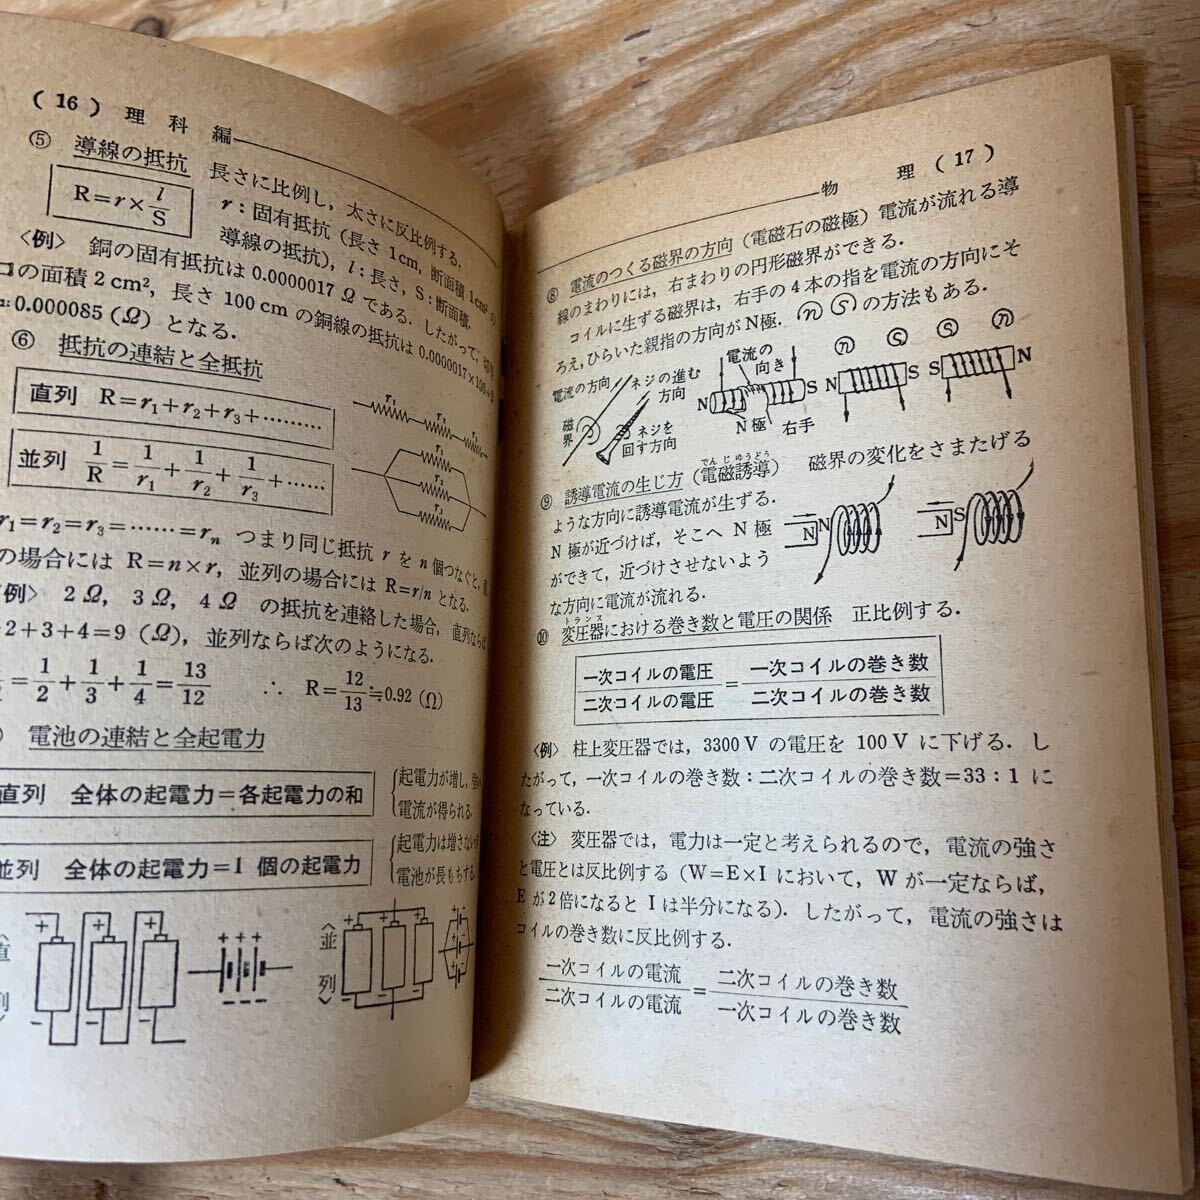 (16) 理科編
⑤ 導線の抵抗 長さに比例し，太さに反比例する．
R=r×l/S
r：固有抵抗（長さ1cm，断面積1cm²の
導線の抵抗），l：長さ，S：断面積．
〈例〉 銅の固有抵抗は0.0000017 Ω である．したがって，切り
口の面積2cm²，長さ100cmの銅線の抵抗は0.0000017×100÷2
=0.000085(Ω)となる．
⑥ 抵抗の連結と全抵抗
直列 R=r₁+r₂+r₃+………
並列 1/R=1/r₁+1/r₂+1/r₃+……
r₁ r₂ r₃
r₁
r₂
r₃
r₁=r₂=r₃=……=rₙ つまり同じ抵抗 r を n 個つなぐと，直
の場合には R=n×r，並列の場合には R=r/n となる．
例〉 2Ω，3Ω，4Ω の抵抗を連絡した場合，直列ならば
2+3+4=9(Ω)，並列ならば次のようになる．
=1/2+1/3+1/4=13/12 ∴ R=12/13≒0.92(Ω)
電池の連結と全起電力
直列 全体の起電力=各起電力の和
起電力が増し，強い
電流が得られる．
並列 全体の起電力=1 個の起電力
起電力は増さないが
電池が長もちする．
〈直列〉
+ + + − − −
+ + +
− − −
〈並列〉
+ + + − − −
+ − + − + −
物理 (17)
⑧ 電流のつくる磁界の方向（電磁石の磁極）電流が流れる導
線のまわりには，右まわりの円形磁界ができる．
コイルに生ずる磁界は，右手の4本の指を電流の方向にそ
ろえ，ひらいた親指の方向がN極．ⓝ Ⓢ の方法もある．
電流の方向
磁界
ネジの進む
方向
ネジを
回す方向
電流の
向き
N S
N極 右手
ⓝ Ⓢ
N S
Ⓢ ⓝ
S N
⑨ 誘導電流の生じ方（電磁誘導） 磁界の変化をさまたげる
でんじゆうどう
ような方向に誘導電流が生ずる．
N極が近づけば，そこへN極
ができて，近づけさせないよう
な方向に電流が流れる．
N N
N S
トランス
⑩ 変圧器における巻き数と電圧の関係 正比例する．
一次コイルの電圧/二次コイルの電圧=一次コイルの巻き数/二次コイルの巻き数
〈例〉 柱上変圧器では，3300 V の電圧を 100 V に下げる．し
たがって，一次コイルの巻き数：二次コイルの巻き数=33：1 に
なっている．
〈注〉 変圧器では，電力は一定と考えられるので，電流の強さ
と電圧とは反比例する（W=E×I において，W が一定ならば，
E が2倍になると I は半分になる）．したがって，電流の強さは
コイルの巻き数に反比例する．
一次コイルの電流/二次コイルの電流=二次コイルの巻き数/一次コイルの巻き数